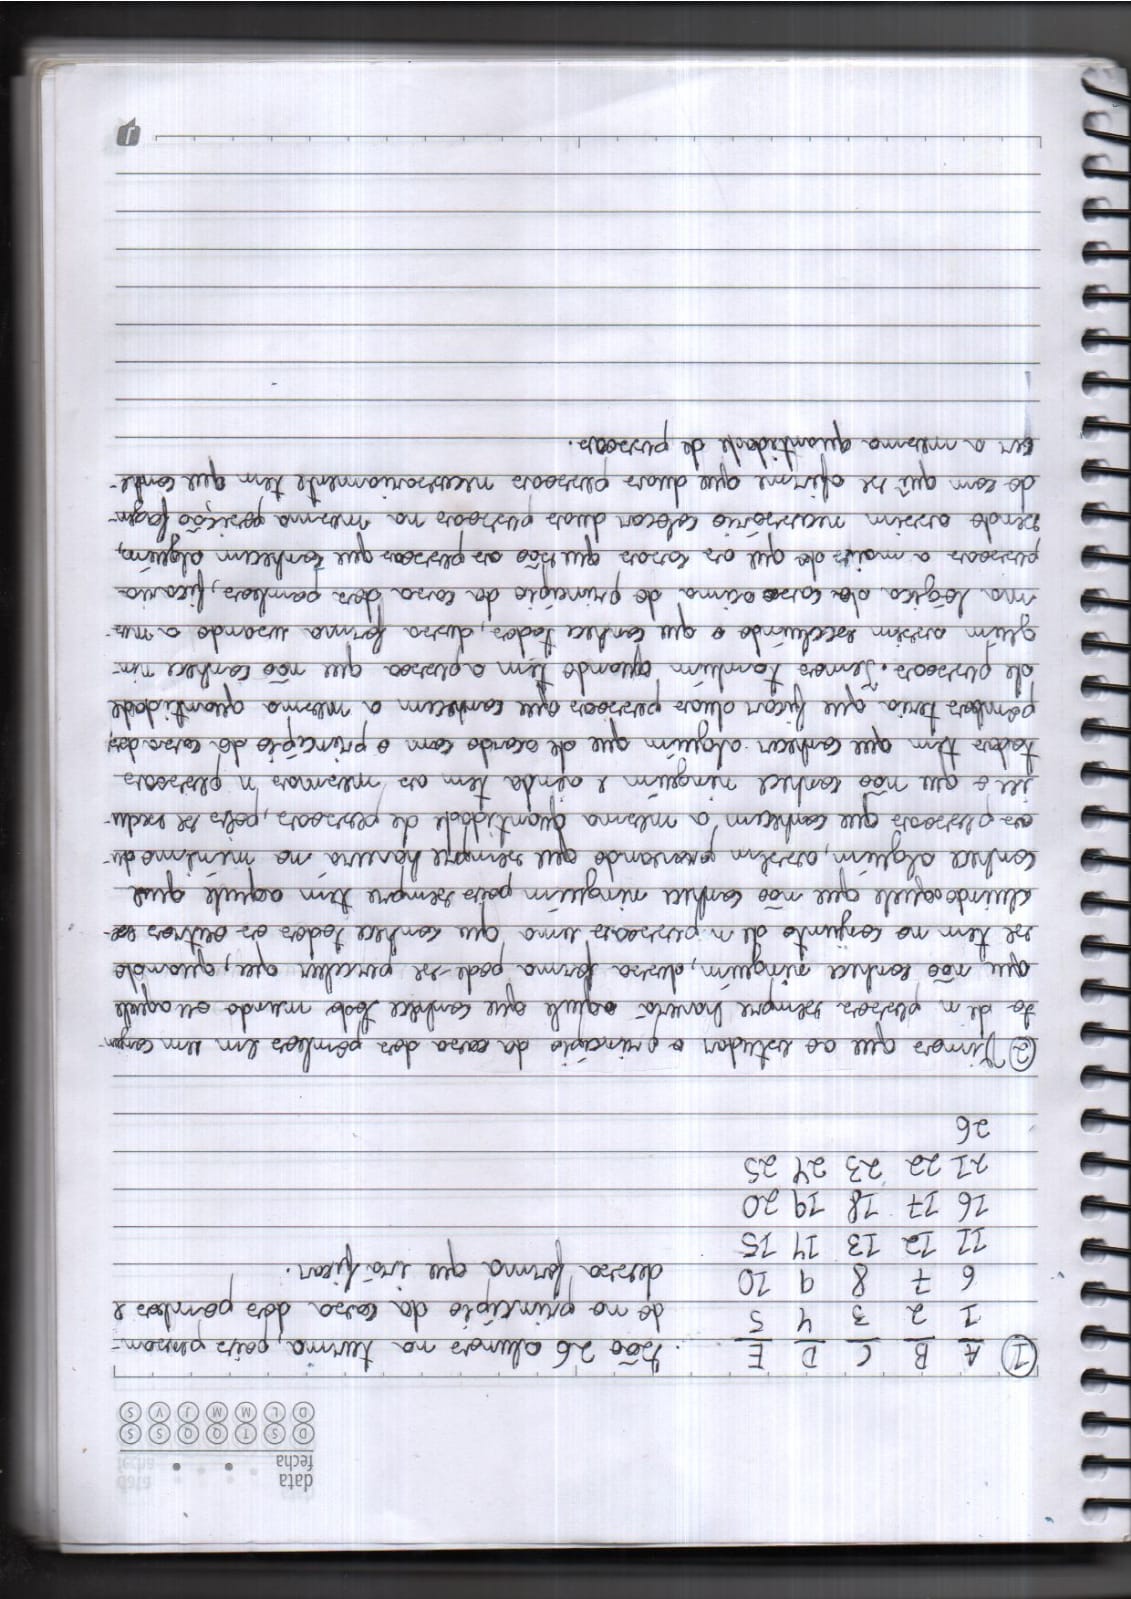 data
fecha
D S T Q Q S S
D L M M J V S
1 A B C D E . São 26 alunos na turma, pois pensan-
1 2 3 4 5 do no princípio da casa dos pombos e
6 7 8 9 10 dessa forma que irá ficar.
11 12 13 14 15
16 17 18 19 20
21 22 23 24 25
26
2 Vimos que ao estudar o princípio da casa dos pombos em um conjun-
to de n pessoas sempre haverá aquele que conhece todo mundo ou aquele
que não conhece ninguém, dessa forma pode-se perceber que, quando
se tem no conjunto de n pessoas uma que conhece todos os outros ex-
cluindo aquele que não conhece ninguém pois sempre tem aquele que
conhece alguém, assim provando que sempre haverá no mínimo du-
as pessoas que conhecem a mesma quantidade de pessoas, pois se exclu-
iu o que não conhece ninguém e ainda tem as mesmas n pessoas
todas tem que conhecer alguém que de acordo com o princípio da casa dos
pombos teria que ficar duas pessoas que conhecem a mesma quantidade
de pessoas. Temos também quando tem a pessoa que não conhece nin-
guém assim excluindo o que conhece todos, dessa forma usando a mes-
ma lógica do caso acima do princípio da casa dos pombos, ficaria
pessoas a mais do que as casas que são as pessoas que conhecem alguém,
sendo assim necessário colocar duas pessoas na mesma posição fazen-
do com quê se afirme que duas pessoas necessariamente tem que conhe-
cer a mesma quantidade de pessoas.